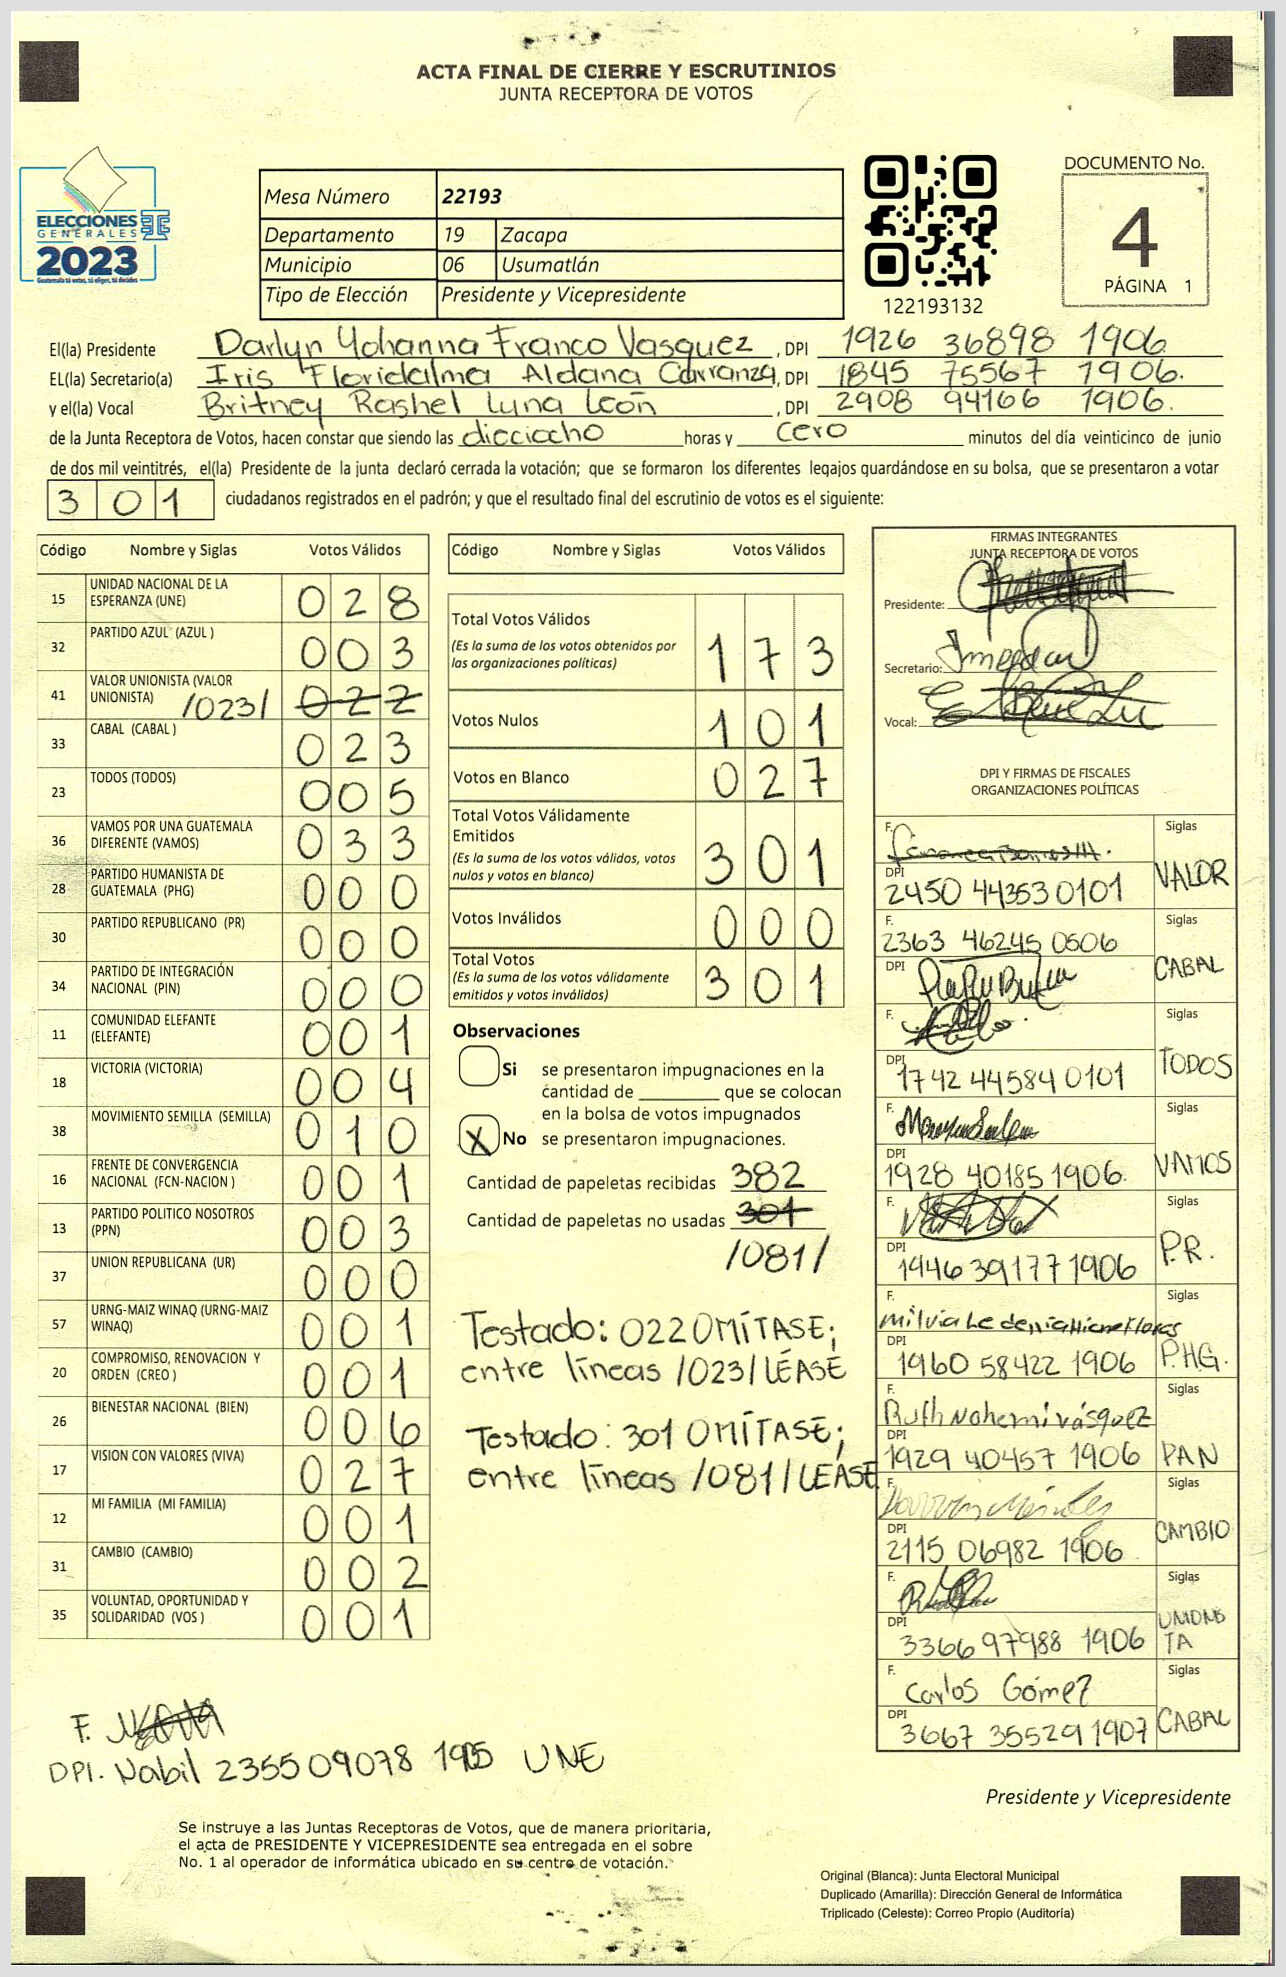 ACTA FINAL DE CIERRE Y ESCRUTINIOS
JUNTA RECEPTORA DE VOTOS
ELECCIONES
GENERALES
2023
Guatemala tú votas, tú eliges, tú decides
Mesa Número 22193
Departamento 19 Zacapa
Municipio 06 Usumatlán
Tipo de Elección Presidente y Vicepresidente
122193132
DOCUMENTO No.
4
PÁGINA 1
El(la) Presidente Darlyn Yohanna Franco Vasquez, DPI 1926 36898 1906
EL(la) Secretario(a) Iris Floridalma Aldana Carranza, DPI 1845 75567 1906.
y el(la) Vocal Britney Rashel Luna León, DPI 2908 94166 1906.
de la Junta Receptora de Votos, hacen constar que siendo las dieciocho horas y cero minutos del día veinticinco de junio
de dos mil veintitrés, el(la) Presidente de la junta declaró cerrada la votación; que se formaron los diferentes legajos guardándose en su bolsa, que se presentaron a votar
301 ciudadanos registrados en el padrón; y que el resultado final del escrutinio de votos es el siguiente:
Código Nombre y Siglas Votos Válidos
15 UNIDAD NACIONAL DE LA ESPERANZA (UNE) 028
32 PARTIDO AZUL (AZUL ) 003
41 VALOR UNIONISTA (VALOR UNIONISTA) /023/ 022
33 CABAL (CABAL ) 023
23 TODOS (TODOS) 005
36 VAMOS POR UNA GUATEMALA DIFERENTE (VAMOS) 033
28 PARTIDO HUMANISTA DE GUATEMALA (PHG) 000
30 PARTIDO REPUBLICANO (PR) 000
34 PARTIDO DE INTEGRACIÓN NACIONAL (PIN) 000
11 COMUNIDAD ELEFANTE (ELEFANTE) 001
18 VICTORIA (VICTORIA) 004
38 MOVIMIENTO SEMILLA (SEMILLA) 010
16 FRENTE DE CONVERGENCIA NACIONAL (FCN-NACION ) 001
13 PARTIDO POLITICO NOSOTROS (PPN) 003
37 UNION REPUBLICANA (UR) 000
57 URNG-MAIZ WINAQ (URNG-MAIZ WINAQ) 001
20 COMPROMISO, RENOVACION Y ORDEN (CREO ) 001
26 BIENESTAR NACIONAL (BIEN) 006
17 VISION CON VALORES (VIVA) 027
12 MI FAMILIA (MI FAMILIA) 001
31 CAMBIO (CAMBIO) 002
35 VOLUNTAD, OPORTUNIDAD Y SOLIDARIDAD (VOS ) 001
F.
DPI. Nabil 2355 09078 1905 UNE
Código Nombre y Siglas Votos Válidos
Total Votos Válidos 173
(Es la suma de los votos obtenidos por
las organizaciones políticas)
Votos Nulos 101
Votos en Blanco 027
Total Votos Válidamente
Emitidos 301
(Es la suma de los votos válidos, votos
nulos y votos en blanco)
Votos Inválidos 000
Total Votos 301
(Es la suma de los votos válidamente
emitidos y votos inválidos)
Observaciones
Si se presentaron impugnaciones en la
cantidad de ________ que se colocan
en la bolsa de votos impugnados
X No se presentaron impugnaciones.
Cantidad de papeletas recibidas 382
Cantidad de papeletas no usadas 301
/081/
Testado: 022 OMÍTASE;
entre líneas /023/ LÉASE
Testado: 301 OMÍTASE;
entre líneas /081/ LÉASE
FIRMAS INTEGRANTES
JUNTA RECEPTORA DE VOTOS
Presidente:
Secretario:
Vocal:
DPI Y FIRMAS DE FISCALES
ORGANIZACIONES POLÍTICAS
F. Siglas
DPI 2450 44353 0101 VALOR
F. 2363 46245 0506 Siglas
DPI CABAL
F. Siglas
DPI 1742 44584 0101 TODOS
F. Siglas
DPI 1928 40185 1906. VAMOS
F. Siglas
DPI 1446 39177 1906 P.R.
F. Siglas
DPI 1960 58422 1906 P.H.G.
F. Ruth Nohemi vásquez Siglas
DPI 1929 40457 1906 PAN
F. Siglas
DPI 2115 06982 1906 CAMBIO
F. Siglas
DPI 3366 97988 1906 UNIONISTA
F. Carlos Gómez Siglas
DPI 3667 35529 1907 CABAL
Presidente y Vicepresidente
Se instruye a las Juntas Receptoras de Votos, que de manera prioritaria,
el acta de PRESIDENTE Y VICEPRESIDENTE sea entregada en el sobre
No. 1 al operador de informática ubicado en su centro de votación.
Original (Blanca): Junta Electoral Municipal
Duplicado (Amarilla): Dirección General de Informática
Triplicado (Celeste): Correo Propio (Auditoría)